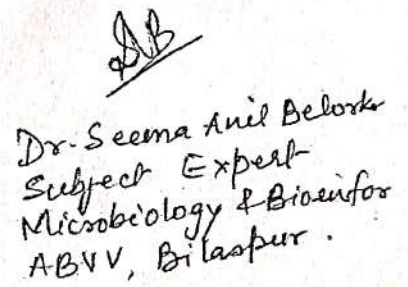 AB
Dr. Seema Anil Belorkr
Subject Expert
Microbiology & Bioinfor
ABVV, Bilaspur.